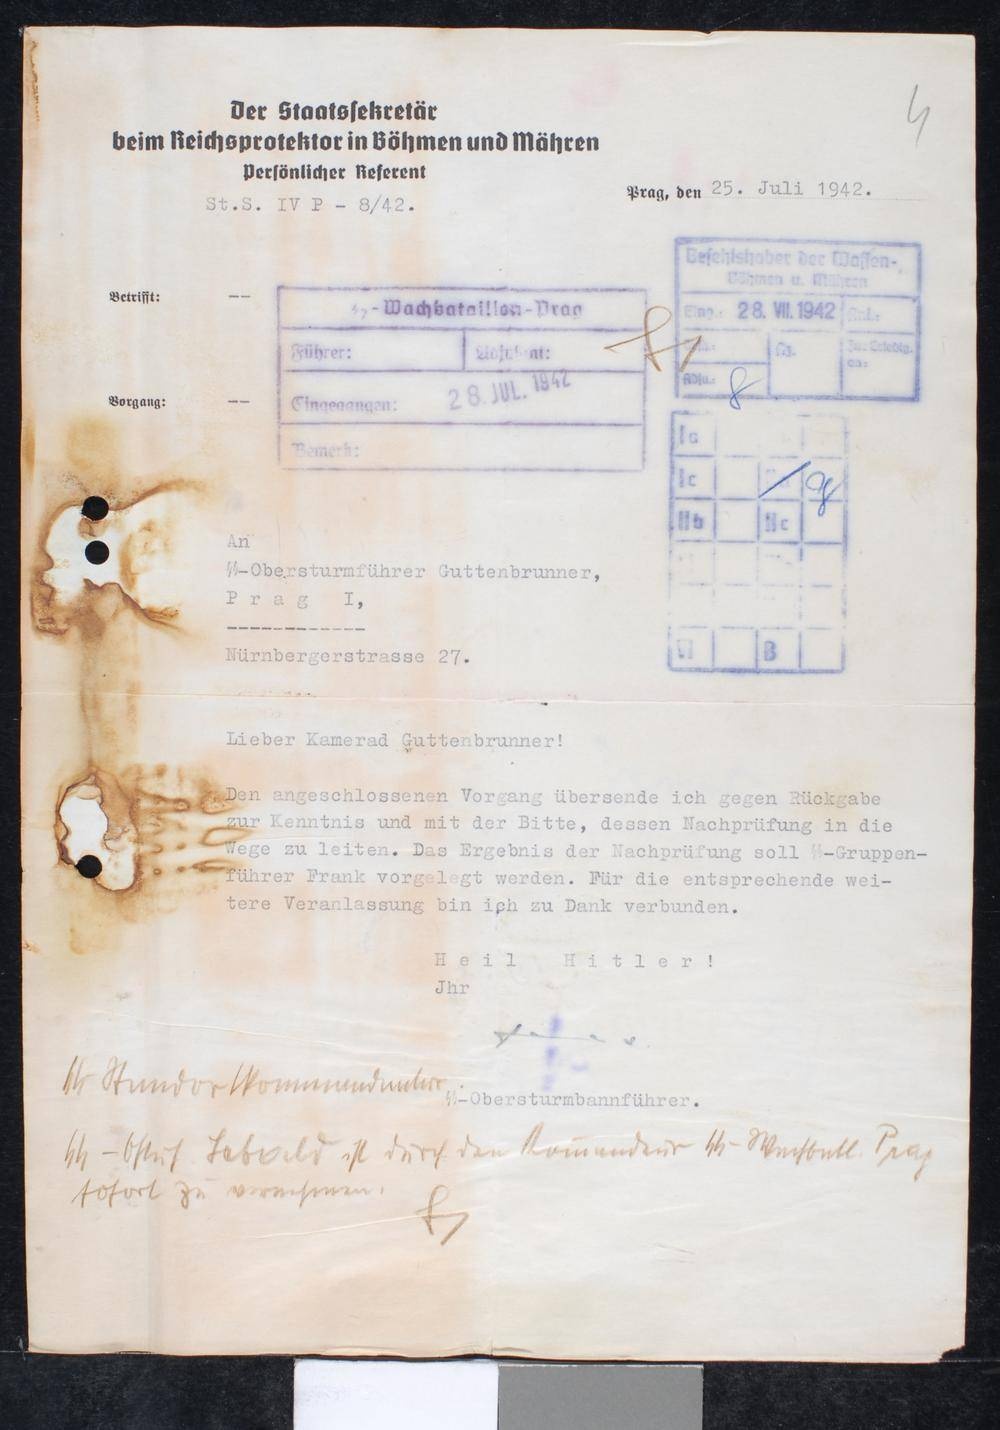 4
Der Staatssekretär
beim Reichsprotektor in Böhmen und Mähren
Persönlicher Referent
St.S. IV P - 8/42.
Prag, den 25. Juli 1942.
Betrifft: --
Vorgang: --
SS-Wachbataillon-Prag
Führer: Adjutant:
Eingegangen: 28. JUL. 1942
Bemerk:
Befehlshaber der Waffen-
Böhmen u. Mähren
Eing.: 28. VII. 1942 Anl.:
Kg. Zur Erledig.
an:
Adju.: 8
Ia
Ic
IIb IIc
VI B
An
SS-Obersturmführer Guttenbrunner,
Prag I,
-----------
Nürnbergerstrasse 27.
Lieber Kamerad Guttenbrunner!
Den angeschlossenen Vorgang übersende ich gegen Rückgabe
zur Kenntnis und mit der Bitte, dessen Nachprüfung in die
Wege zu leiten. Das Ergebnis der Nachprüfung soll SS-Gruppen-
führer Frank vorgelegt werden. Für die entsprechende wei-
tere Veranlassung bin ich zu Dank verbunden.
Heil Hitler!
Jhr
SS-Obersturmbannführer.
SS Standortkommandantur.
SS-Ostuf ist durch den Kommandeur SS-Wachbatl. Prag
sofort zu vernehmen.